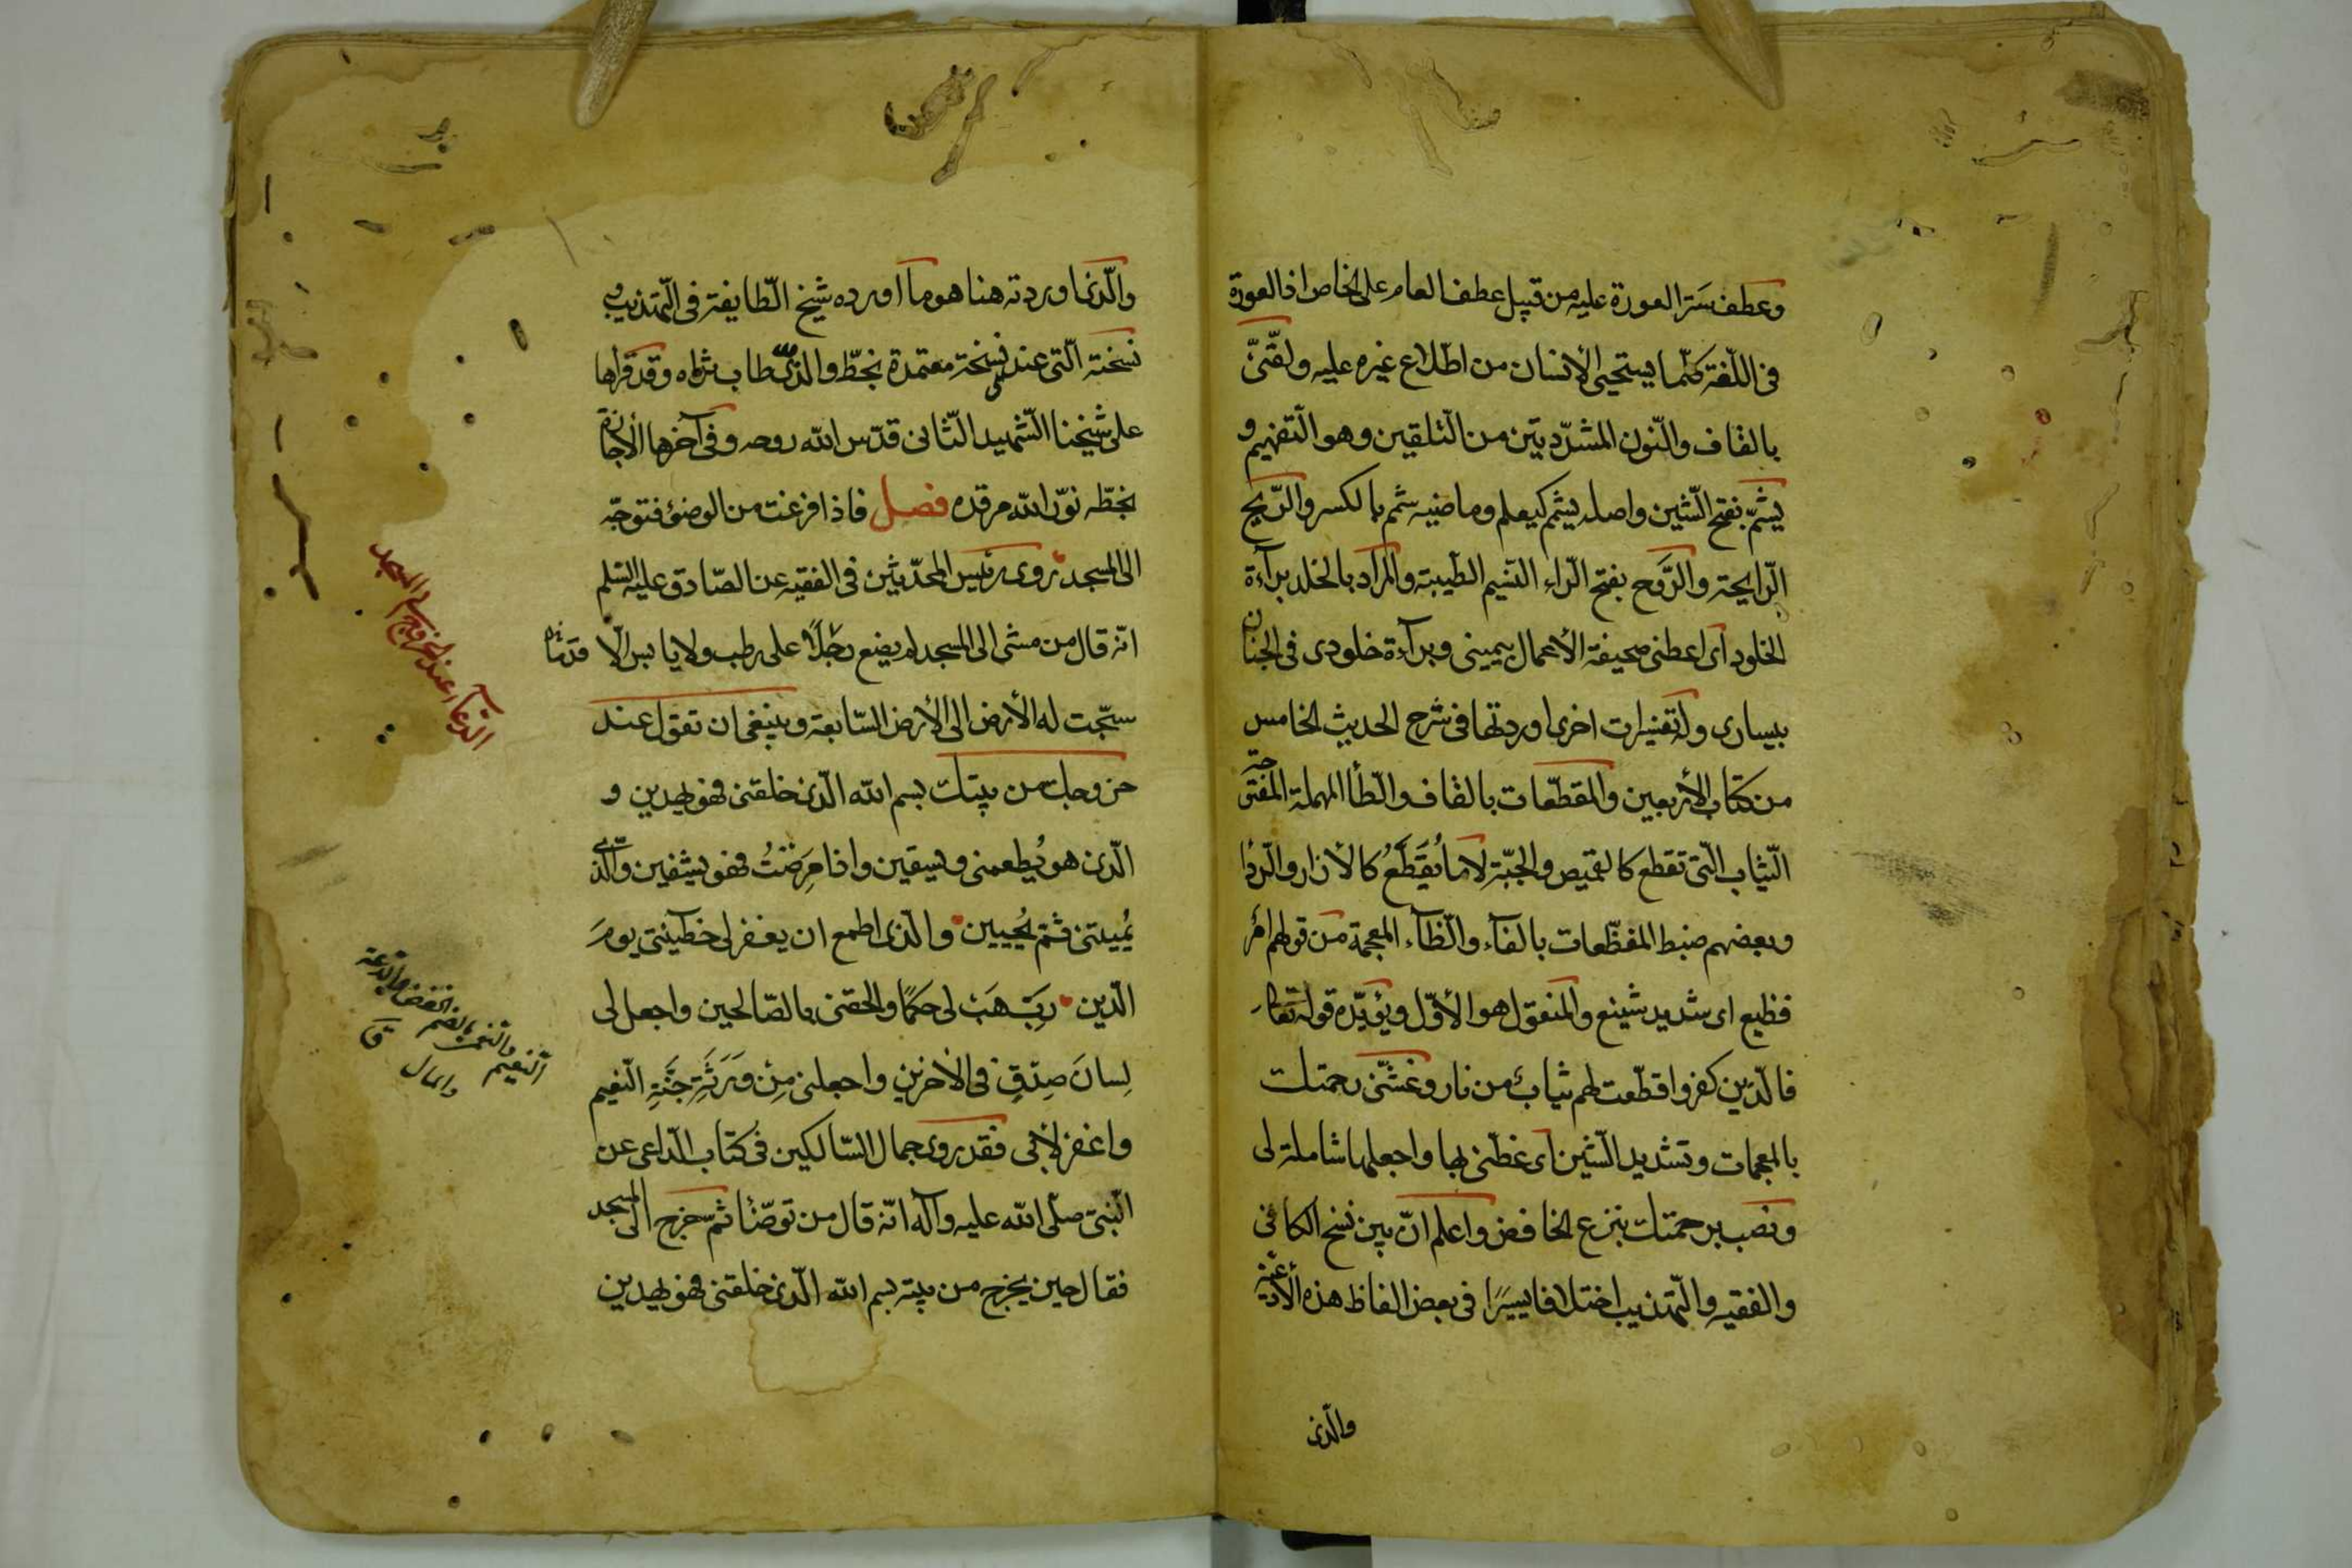 وعطف ستر العورة عليه من قبيل عطف العام على الخاص اذ العورة
فى اللّغة كلّما يستحيى الأنسان من اطلاع غيره عليه ولقّنّى
بالقاف والنّون المشدّدتين من التلقين وهو التفهيم و
يشمّ بفتح الشّين واصله يشم كيعلم وماضيه شم بالكسر والرّيح
الرّايحة والرَّوح بفتح الرّاء النسيم الطيبة والمراد بالخلد برآءة
الخلود اى اعطنى صحيفة الأعمال بيمينى وبرآءة خلودى فى الجنان
بيسارى وله تفسيرات اخرى اوردتها فى شرح الحديث الخامس
من كتاب الأربعين والمقطّعات بالقاف والطّأ المهملة المفتوحة
الثّياب الّتى تقطع كالقميص والجبّة لا ما يُقَطَّعُ كالأزار والرّدا
وبعضهم ضبط المفظّعات بالفآء والظّآء المعجمة من قولهم امْر
فظيع اى شديد شنيع والمنقول هو الأوّل ويؤيّده قوله تعالى
فالّذين كفروا قطّعت لهم ثياب من نار وغشّنى رحمتك
بالمعجمات وتشديد الشّين اى غطّنى بها واجعلها شاملة لى
ونصب برحمتك بنزع الخافض واعلم انّ بين نسخ الكافى
والفقيه والتّهذيب اختلافا يسيرًا فى بعض الفاظ هذه الأدعية
والّذى
والّذى اوردته هنا هو ما اورده شيخ الطّايفة فى التّهذيب و
نسخته الّتى عندى نسخة معتمدة بخطّ والدى طاب ثراه وقد قرأها
على شيخنا الشّهيد الثّانى قدّس الله روحه وفى آخرها الأجازة
بخطّه نوّر الله مرقده فصل فاذا فرغت من الوضوء فتوجّه
الى المسجد روى رئيس المحدّثين فى الفقيه عن الصّادق عليه السّلم
انّه قال من مشى الى المسجد لم يضع رجلًا على رطب ولا يابس الّا
سبّحت له الأرض الى الأرض السّابعة وينبغى ان تقول عند
خروجك من بيتك بسم الله الّذى خلقنى فهو يهدين و
الّذى هو يُطعمنى ويسقين واذا مَرِضْتُ فهو يشفين والّذى
يُميتنى ثم يُحيين والّذى اطمع ان يغفر لى خطيئتى يومَ
الدّين ربّ هَبْ لى حكمًا والحقنى بالصّالحين واجعل لى
لِسانَ صِدْقٍ فى الأخرين واجعلنى مِنْ وَرَثَةِ جَنَّةِ النّعيم
واغفر لأبى فقد روى جمال السّالكين فى كتاب الدّاعى عن
النّبىّ صلّى الله عليه وآله انّه قال من توضّأ ثم خرج الى المسجد
فقال حين يخرج من بيته بسم الله الّذى خلقنى فهو يهدين
الدّعآء عند الخروج الى المسجد
النّعيم والنعمى بالضم الخفض والدعة
والمال ق